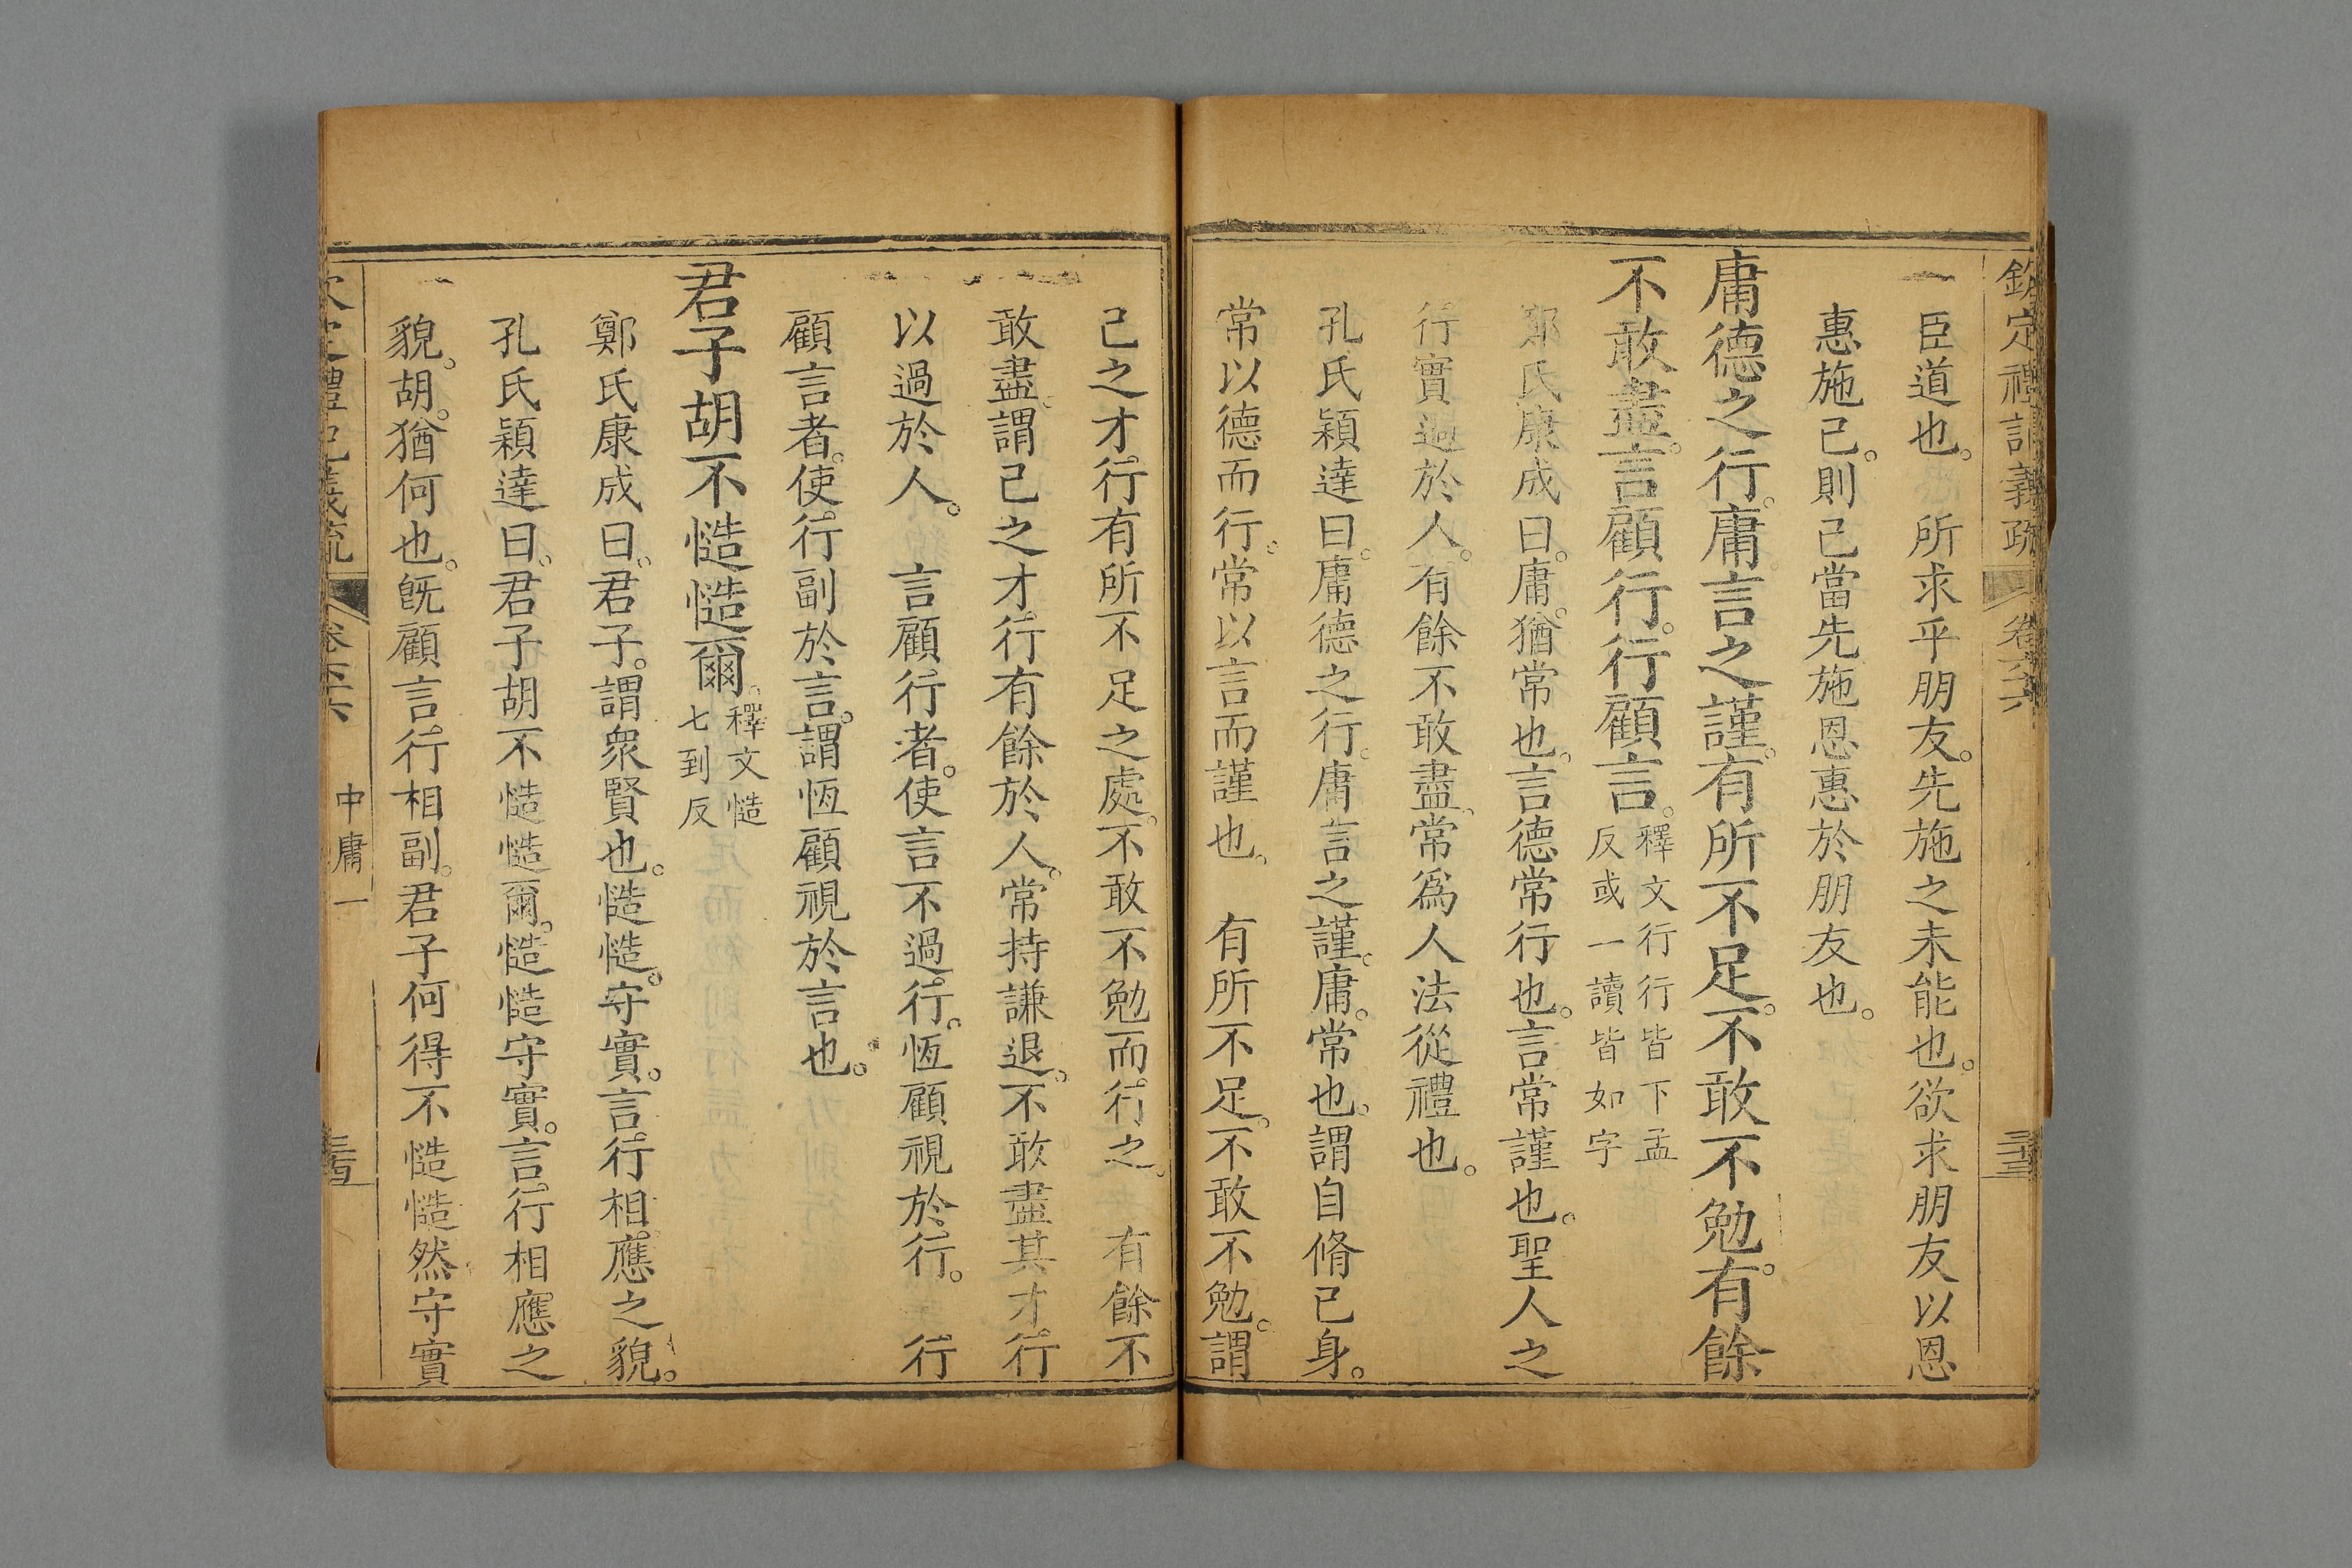 臣道也。所求乎朋友。先施之未能也。欲求朋友以恩
惠施己。則己當先施恩惠於朋友也。
庸德之行。庸言之謹。有所不足。不敢不勉。有餘
不敢盡。言顧行。行顧言。釋文行行皆下孟
反或一讀皆如字
鄭氏康成曰。庸。猶常也。言德常行也。言常謹也。聖人之
行實過於人。有餘不敢盡。常爲人法從禮也。
孔氏穎達曰。庸德之行。庸言之謹。庸。常也。謂自脩己身。
常以德而行。常以言而謹也。有所不足。不敢不勉。謂
己之才行有所不足之處。不敢不勉而行之。有餘不
敢盡。謂己之才行有餘於人。常持謙退。不敢盡其才行
以過於人。言顧行者。使言不過行。恆顧視於行。行
顧言者。使行副於言。謂恆顧視於言也。
君子胡不慥慥爾。釋文慥
七到反
鄭氏康成曰。君子。謂衆賢也。慥慥。守實。言行相應之貌。
孔氏穎達曰。君子胡不慥慥爾。慥慥守實。言行相應之
貌。胡。猶何也。旣顧言行相副。君子何得不慥慥然守實
中庸一